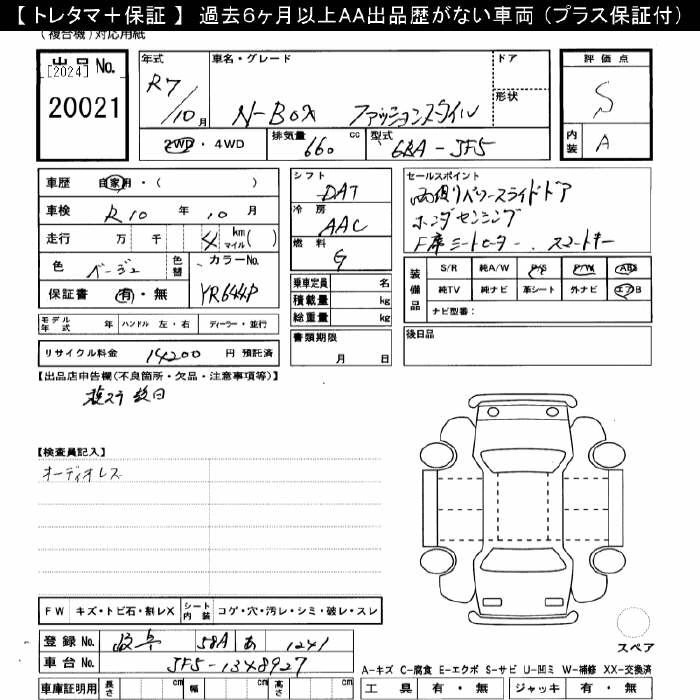 【トレタマ＋保証】 過去6ヶ月以上AA出品歴がない車両（プラス保証付）
（複合機）対応用紙
出品 No.
[2024]
20021
年式
R7/10月
車名・グレード
N-BOX ファッションスタイル
ドア
形状
評価点
S
内装 A
2WD・4WD
排気量 660 cc
型式 6BA-JF5
車歴 自家用・( )
車検 R10 年 10 月
走行 万 千 4 km マイル( )
色 ベージュ 色替
カラーNo. YR644P
保証書 有・無
モデル年式 年 ハンドル 左・右 ディーラー・並行
リサイクル料金 14200 円 預託済
シフト DAT
冷房 AAC
燃料 G
乗車定員 名
積載量 kg
総重量 kg
書類期限
月 日
セールスポイント
両側パワースライドドア
ホンダセンシング
F席シートヒーター . スマートキー
装備品
S/R 純A/W P/S P/W ABS
純TV 純ナビ 革シート 外ナビ エアB
ナビ型番：
後日品
【出品店申告欄(不良箇所・欠品・注意事項等)】
後日
【検査員記入】
オーディオレス
FW キズ・トビ石・割レX
シート内装 コゲ・穴・汚レ・シミ・破レ・スレ
登録 No. 岐阜 58A あ 1241
車台 No. JF5-1348927
車庫証明用 長さ cm 幅 cm 高さ cm
スペア
A-キズ C-腐食 E-エクボ S-サビ U-凹ミ W-補修 XX-交換済
工具 有・無 ジャッキ 有・無